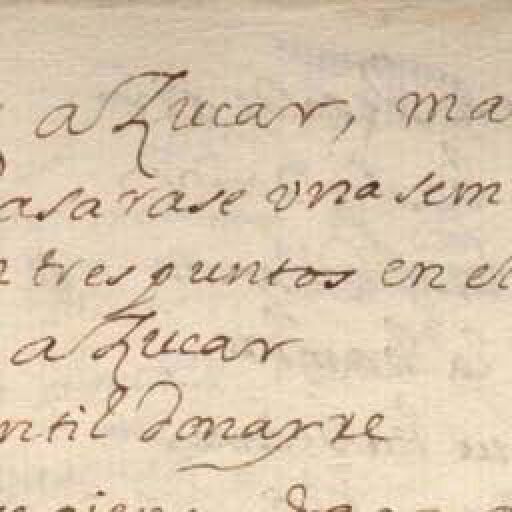 aZucar, ma
asarase vna sem
tres puntos en el
aZucar
ntil donayre